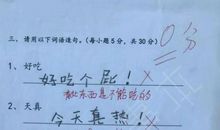 0分
三、请用以下词语造句。(每小题5分,共30分)
1、好吃
好吃个屁!×
此东西是不能吃的
2、天真
今天真热!×